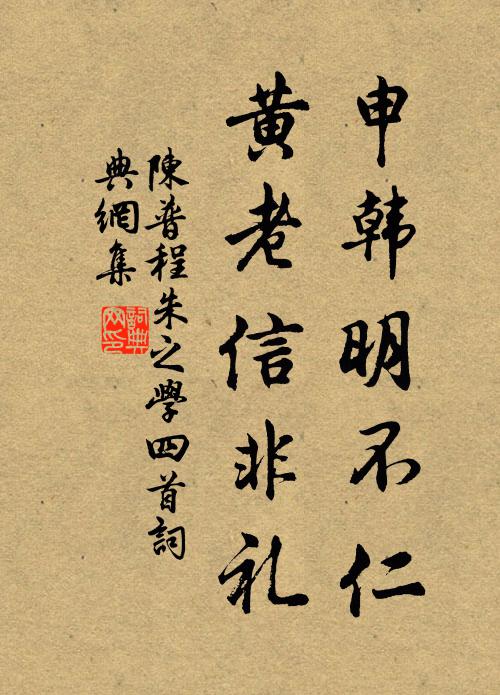 申韩明不仁
黄老信非礼
陳普程朱之學四首詞
典網集
詞典網印